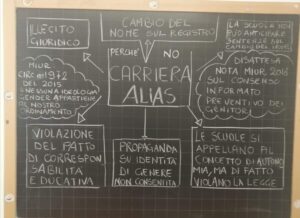 ILLECITO
GIURIDICO
CAMBIO DEL
NOME SUL REGISTRO
LA SCUOLA NON
PUÒ ANTICIPARE
SENTENZE SUL
CAMBIO DEL SESSO
PERCHÉ NO
CARRIERA
ALIAS
MIUR
CIRC. N° 1972
DEL 2015
NESSUNA IDEOLOGIA
GENDER APPARTIENE
AL NOSTRO
ORDINAMENTO
DISATTESA
NOTA MIUR 2018
SUL CONSENSO
INFORMATO
PREVENTIVO DEI
GENITORI
VIOLAZIONE
DEL PATTO
DI CORRESPON
SABILITÀ
EDUCATIVA
PROPAGANDA
SU IDENTITÀ
DI GENERE
NON CONSENTITA
LE SCUOLE SI
APPELLANO AL
CONCETTO DI AUTONO
MIA, MA DI FATTO
VIOLANO LA LEGGE